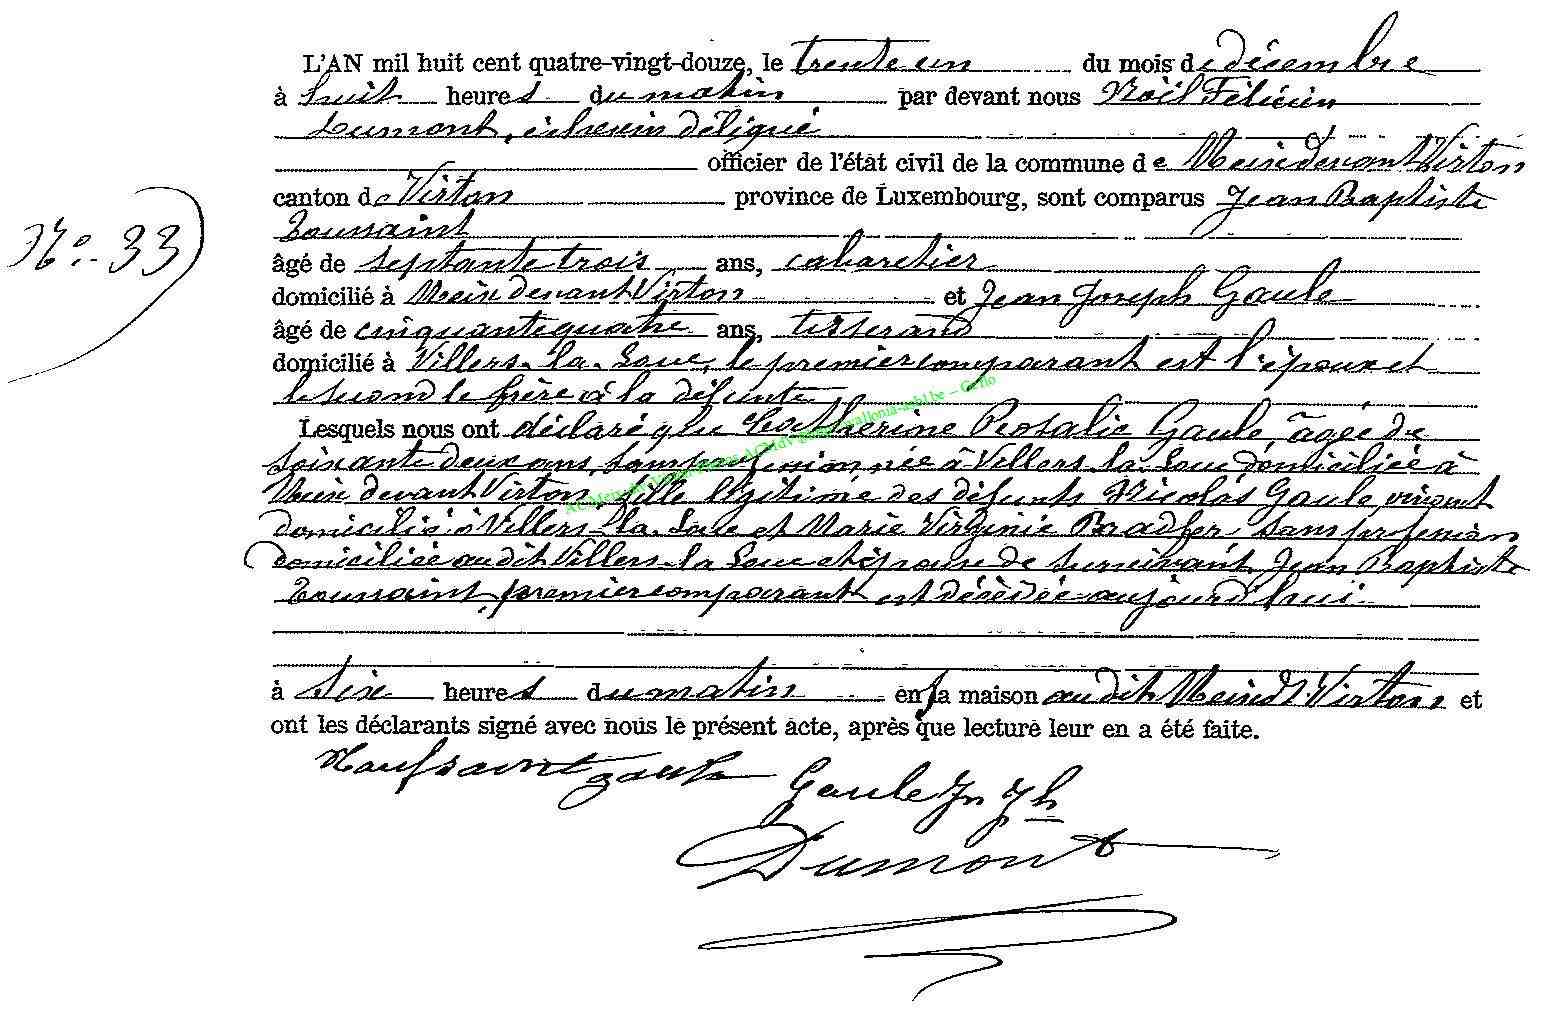 L'AN mil huit cent quatre-vingt-douze, le trente un du mois de décembre
à huit heures du matin par devant nous Noël Félicien
Dumont, échevin délégué
officier de l'état civil de la commune de Meix devant Virton
canton de Virton province de Luxembourg, sont comparus Jean Baptiste
Toussaint
No. 33
âgé de septante trois ans, cabaretier
domicilié à Meix devant Virton et Jean Joseph Gaule
âgé de cinquante quatre ans, tisserand
domicilié à Villers-la-Loue, le premier comparant est l'époux et
le second le frère à la défunte
Lesquels nous ont déclaré que Catherine Rosalie Gaule, âgée de
soixante deux ans, sans profession née à Villers la Loue domiciliée à
Meix devant Virton, fille légitime des défunts Nicolas Gaule vivant
domicilié à Villers-la-Loue et Marie Virginie Bradfer sans profession
domiciliée audit Villers-la Loue et épouse de survivant Jean Baptiste
Toussaint, premier comparant est décédée aujourd'hui
à six heures du matin en sa maison audit Meix dt Virton et
ont les déclarants signé avec nous le présent acte, après que lecture leur en a été faite.
gaule Gaule Jn Jh
Dumont